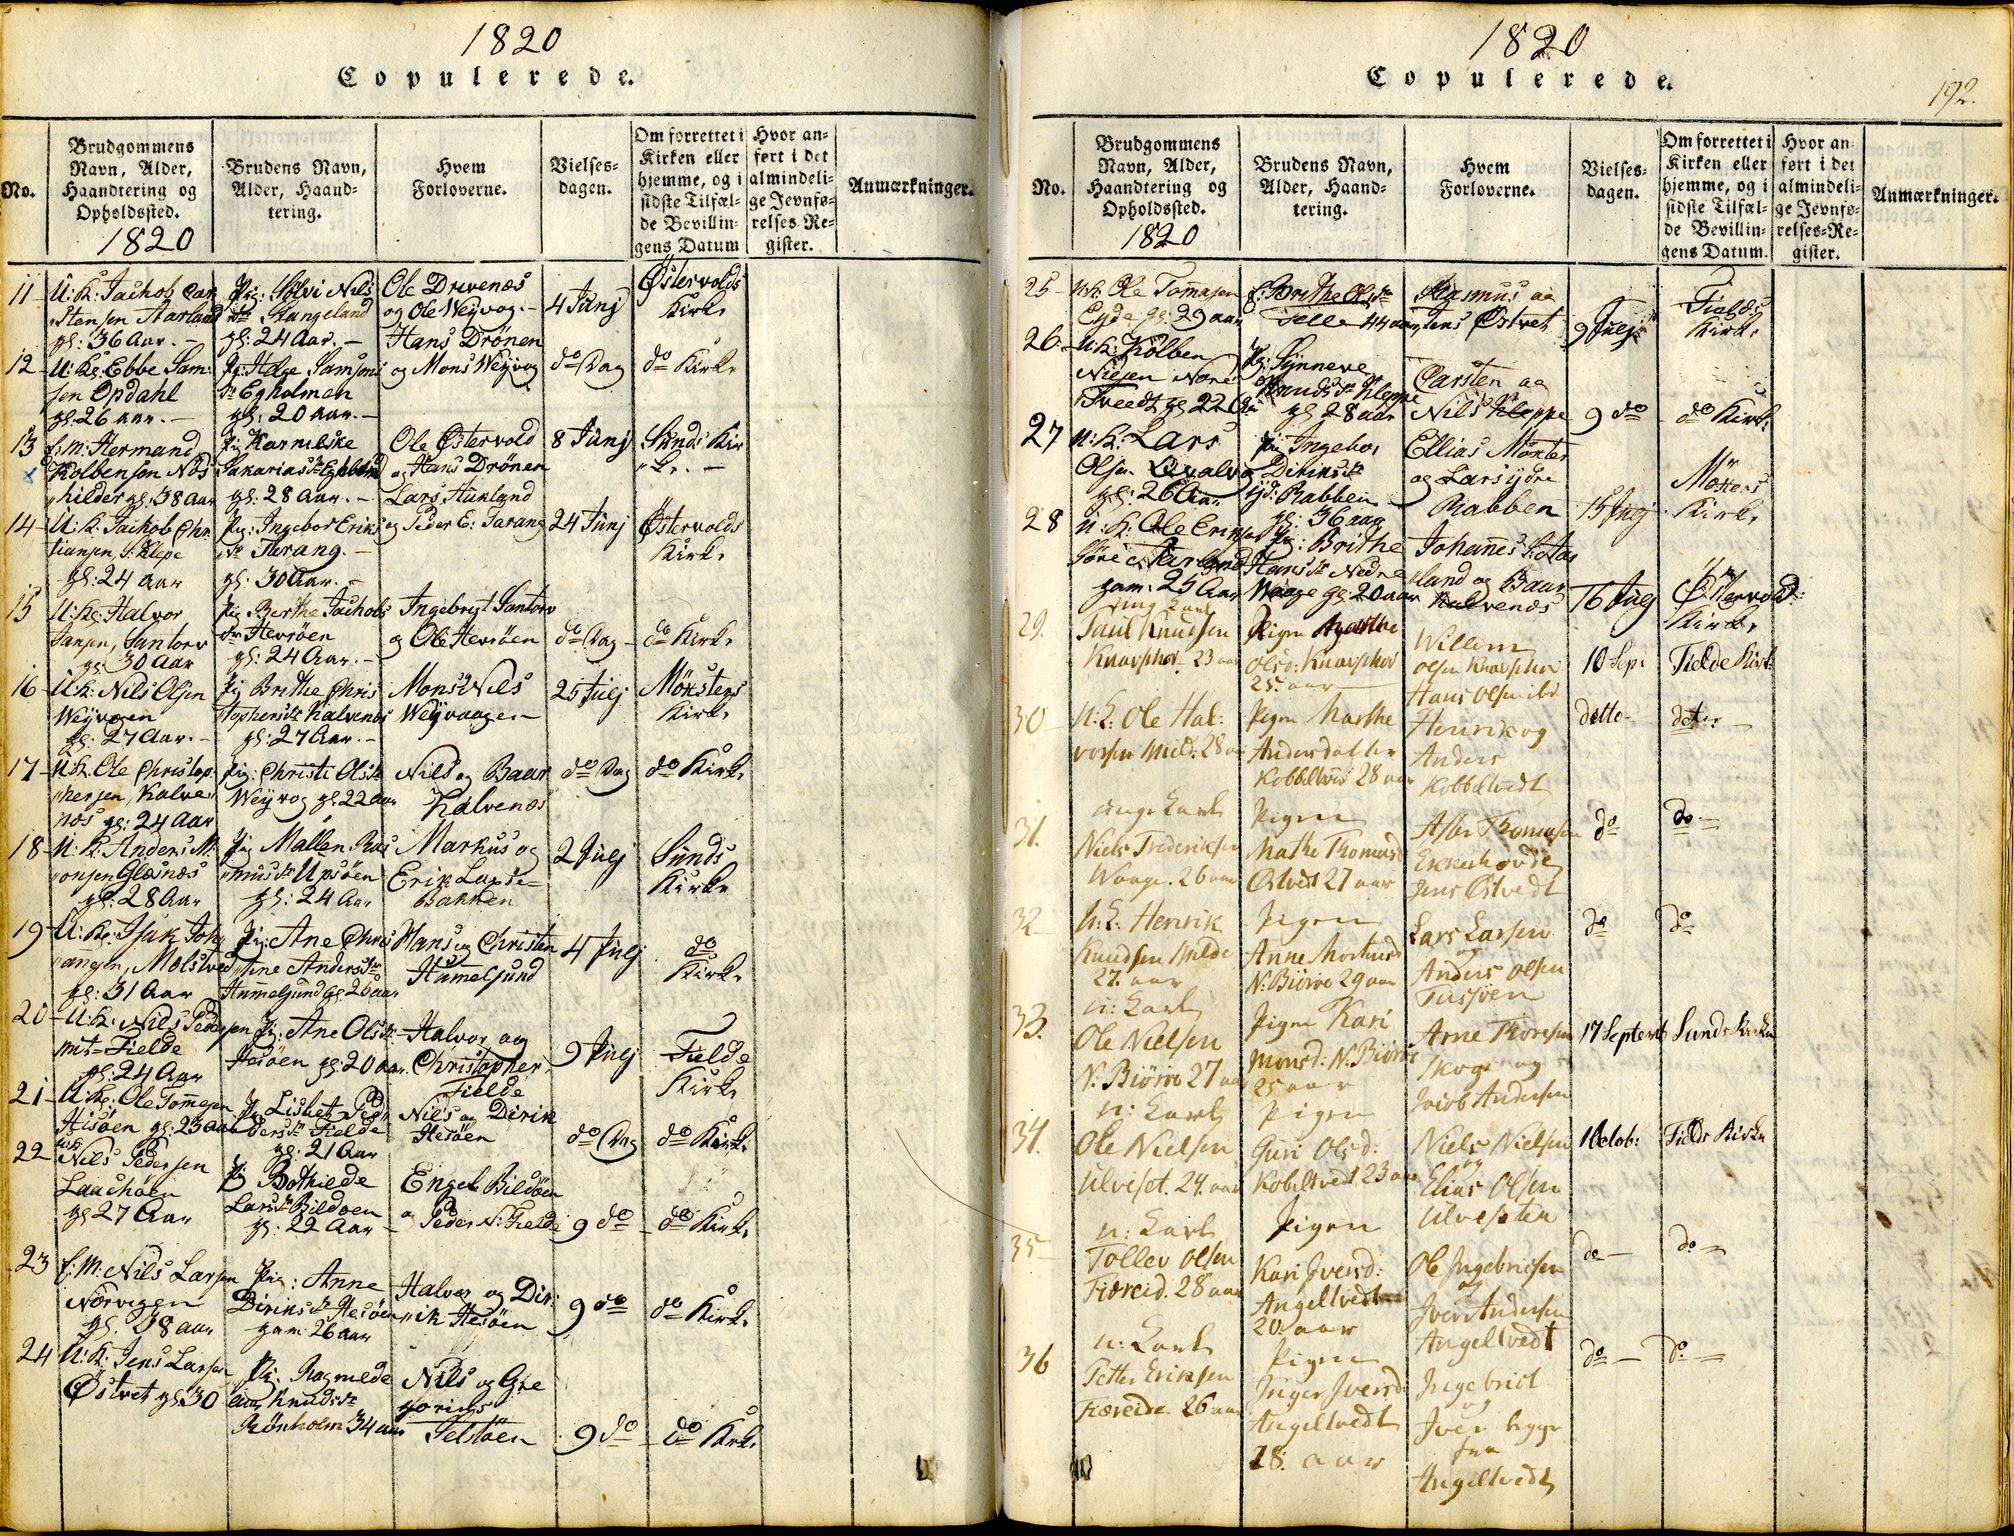 1820
Copulerede.
No.
Brudgommens
Navn, Alder,
Haandtering og
Opholdssted.
1820
Brudens Navn,
Alder, Haand-
tering.
Hvem
Forloverne.
Vielses-
dagen.
Om forrettet i
Kirken eller
hjemme, og i
sidste Tilfæl-
de Bevillin-
gens Datum
Hvor an-
ført i det
almindeli-
ge Jevnfø-
relses Re-
gister.
Anmærkninger.
11
U: K: Jachob Car
stensen Aarland
gl: 36 Aar.
Pig: Sølvi Nils
dr Stangeland
gl: 24 Aar.
Ole Drivenæs
og Ole Weyvog.
4 Junj
Østervolds
Kirke
12
U: K: Ebbe Sam:
sen Opdahl
gl: 26 aar.
Pg: Helge Samsons
dr Egholmen
gl: 20 Aar.
Hans Drönen
og Mons Weyvog
do Dag
do Kirke
13
E: M: Hermand
Kolbensen Nös
kilder gl: 38 aar
Pig Karneliske
Sakarias dr
gl: 28 Aar.
Ole Østervold
og Hans Drönen
8 Junj
Sunds Kir
ke.
14
U: K: Jachob Chr
tiansen, S: Klepe
gl: 24 aar
Pig: Ingebor Eriks
dr Tarang.
gl: 30 Aar.
Lars Aukland
og Peder E: Tarang
24 Junj
Østervolds
Kirke
15
U: K: Halvor
Jansen, Santorv
gl: 30 Aar
Pig Berthe Jachobs
dr Hevröen
gl: 24 Aar.
Ingebrigt Santorv
og Ole Hevröen
do Dag
do Kirke
16
U: K: Nils Olsen
Weyvogen
gl: 27 Aar.
Pig Brithe Chris
tophersdr Kalvenæs
gl: 27 Aar.
Mons Nils
Weyvaagen
25 Julj
Mönsters
Kirke
17
U: K. Ole Christop
hersen, Kalve
næs gl: 24 Aar
Pig: Christi Olsdr
Weyvog gl: 22 aar
Nils og Baar
Kalvenæs
do Dag
do Kirke
18
U: K: Anders M:
onsen Glæsnæs
gl: 28 Aar
Pig Mallen Ras
musdr Upsöen
gl: 24 Aar
Markus og
Erik Lapse-
Bakken
2 Julj
Sunds
Kirke
19
U: K: Isak Joh
ansen, Molstved
gl: 31 Aar
Pig: Ane Chris
tine Andersdr
Hummelsund gl 26 aar
Hans og Christen
Hummelsund
4 Julj
do
Kirke
20
U: K: Nils Pedersen
mt Fielde
gl: 24 Aar
Pig: Ane Olsdr
Hesöen gl: 20 aar
Halvor og
Christopher
Fielde
9 Julj
Fielde
Kirke
21
U: K: Ole Tommesen
Hisöen gl: 23 aar
Pig Lisbet Pe
dersdr Fielde
gl: 21 Aar
Nils og Dirik
Hesöen
do Dag
do Kirke
22
UK
Nils Pedersen
Laachöen
gl 27 Aar
Pg Bothilde
Larsdr Bildoen
gl: 22 Aar
Engel Bildöen
og Peder N: Fielde
9 do
do Kirke
23
E: M: Nils Larsen
Norvegen
gl. 38 aar
Pig: Anne
Diriksdr Hesöen
gam 26 aar
Halvor og Dir
ik Hesöen
9 do
do Kirke
24
U: K: Jens Larsen
Östvet gl: 30
Pig: Ragnilde
aar Knudsdr
Rönholm 34 aar
Nils og Gre
gorius
Selstöen
9 do
do Kirke
1820
Copulerede.
192.
No.
Brudgommens
Navn, Alder,
Haandtering og
Opholdssted.
1820
Brudens Navn,
Alder, Haand-
tering.
Hvem
Forloverne.
Vielses-
dagen.
Om forrettet i
Kirken eller
hjemme, og i
sidste Tilfæl-
de Bevillin-
gens Datum.
Hvor an-
ført i det
almindeli-
ge Jevnfø-
relses-Re-
gister.
Anmærkninger.
25
UK Ole Tomasen
Eyde gl: 29 aar
E: Brithe Olsdr
Telle 44 aar
Rasmus og
Jens Östvet
9 Julj
Fields
Kirke
26
U: K: Kolben
Nilsen Nore
Tveedt gl 22 Aar
Pg: Synneve
Knudsdr Kleppe
gl 28 aar
Carsten og
Nils Kleppe
9 do
do Kirke
27
U: K: Lars
Olsen Qvalvog
gl: 26 Aar
Pig Ingebor
Diriksdr
yd: Rabben
gl: 36 aar
Ellias Möxter
og Lars ydre
Rabben
15 Julj
Mösters
Kirke
28
U: K. Ole Eriksen
Söre Aarland
gam: 25 Aar
Pig: Brithe
Hansdr Nedre
Waage gl 20 aar
Johannes S: Aar
land og Baar
Kalvenæs
16 Julj
Östervold
Kirke
29.
ung Karl
Paul Knudsen
Knarphov 23 aar
Pigen Marthe
Olsd: Knarphov
25. aar
Willem
Olsen Knarphov
Hans Olsen ibd
10 Sep:
Fielde Kirk:
30
U: K: Ole Hal:
vorsen Milde 28 aar
Pigen Marthe
Andersdatter
Kobbeltved 28 aar
Henrik og
Anders
Kobbeltvedt
detto
deto
31.
unge Karl
Niels Frederiksen
Waage. 26 aar
Pigen
Mathe Thomasd
Østvedt 27 aar
Asber Thomasen
Ekkerhovde
Jens Østvedt
do
do
32
U: K: Henrik
Knudsen Milde
27. aar
Pigen
Anne Mortensd
N: Biörøe 29 aar
Lars Larsen
og
Anders Olsen
Tussöen
do
do
33.
u: Karl
Ole Nielsen
N: Biörøe 27 aar
Pigen Kari
Monsd: N: Biörøe
25 aar
Arne Thoresen
Skoge og
Jacob Andersen
17 Septemb
Sunds Kirke
34.
u: Karl
Ole Nielsen
Ulveset. 24. aar
Pigen
Guri Olsd:
Kobeltvedt 23 aar
Niels Nielsen
og
Elias Olsen
Ulvesæter
1 Octob:
Fields Kirke
35
u: Karl
Tollev Olsen
Fiæreid. 28 aar
Pigen
Kari Iversd:
Angeltvedt
20 aar
Ole Ingebrictsen
og
Iver Andersen
Angeltvedt
do
do
36
u: Karl
Petter Eriksen
Fiæreide 26 aar
Pigen
Inger Iversd:
Angeltvedt
18. aar
Ingebrict
og
Iver begge
fra
Angeltvedt
do
do